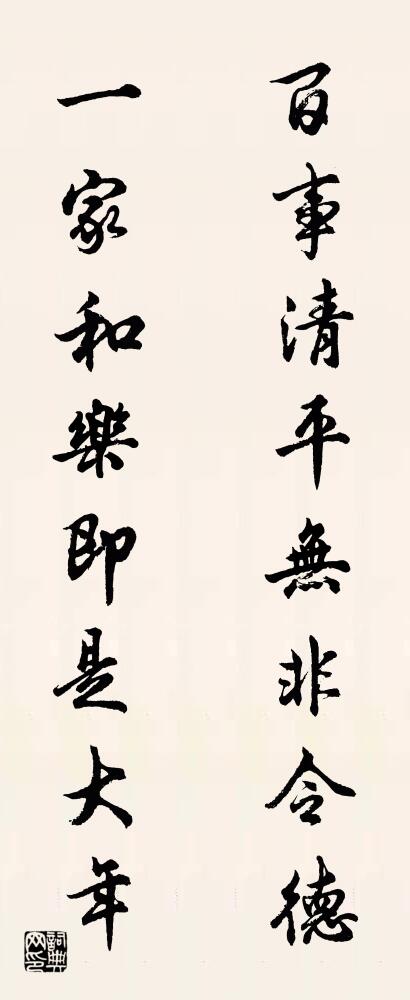 百事清平無非令德
一家和樂即是大年
詞典網印